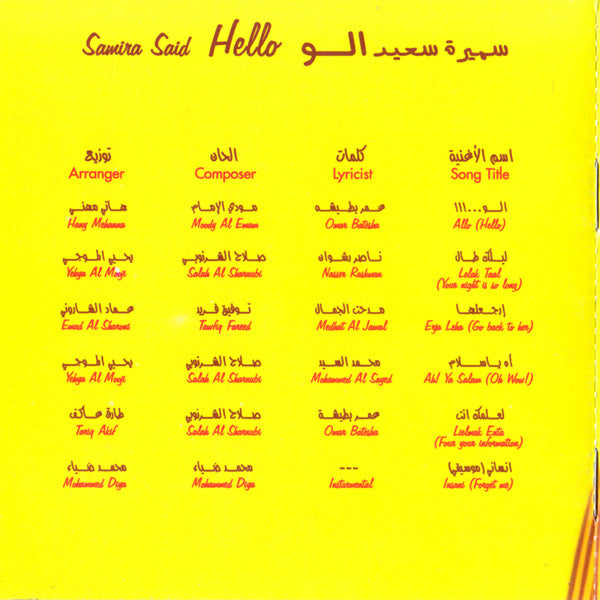 Samira Said Hello سميرة سعيد الــو
توزيع الحان كلمات اسم الأغنية
Arranger Composer Lyricist Song Title
هاني مهني مودي الإمام عمر بطيشه الــو...!!!
Hany Mehanna Moody Al Emam Omar Batesha Allo (Hello)
يحيي الموجي صلاح الشرنوبي ناصر رشوان ليلك طال
Yehya Al Mooji Salah Al Sharnubi Nasser Rashwan Lelak Taal
(Your night is so long)
عماد الشاروني توفيق فريد مدحت الجمال إرجعلها
Emad Al Sharoni Tawfiq Fareed Medhat Al Jamal Erja Leha (Go back to her)
يحيي الموجي صلاح الشرنوبي محمد السيد آه ياسلام
Yehya Al Mooji Salah Al Sharnubi Mohammed Al Sayed Ah! Ya Salam (Oh Wow!)
طارق عاكف صلاح الشرنوبي عمر بطيشة لعلمك انت
Tariq Akif Salah Al Sharnubi Omar Batesha Lielmak Enta
(Four your information)
محمد ضياء محمد ضياء --- انساني (موسيقي)
Mohammed Diya Mohammed Diya Insturmental Insani (Forget me)